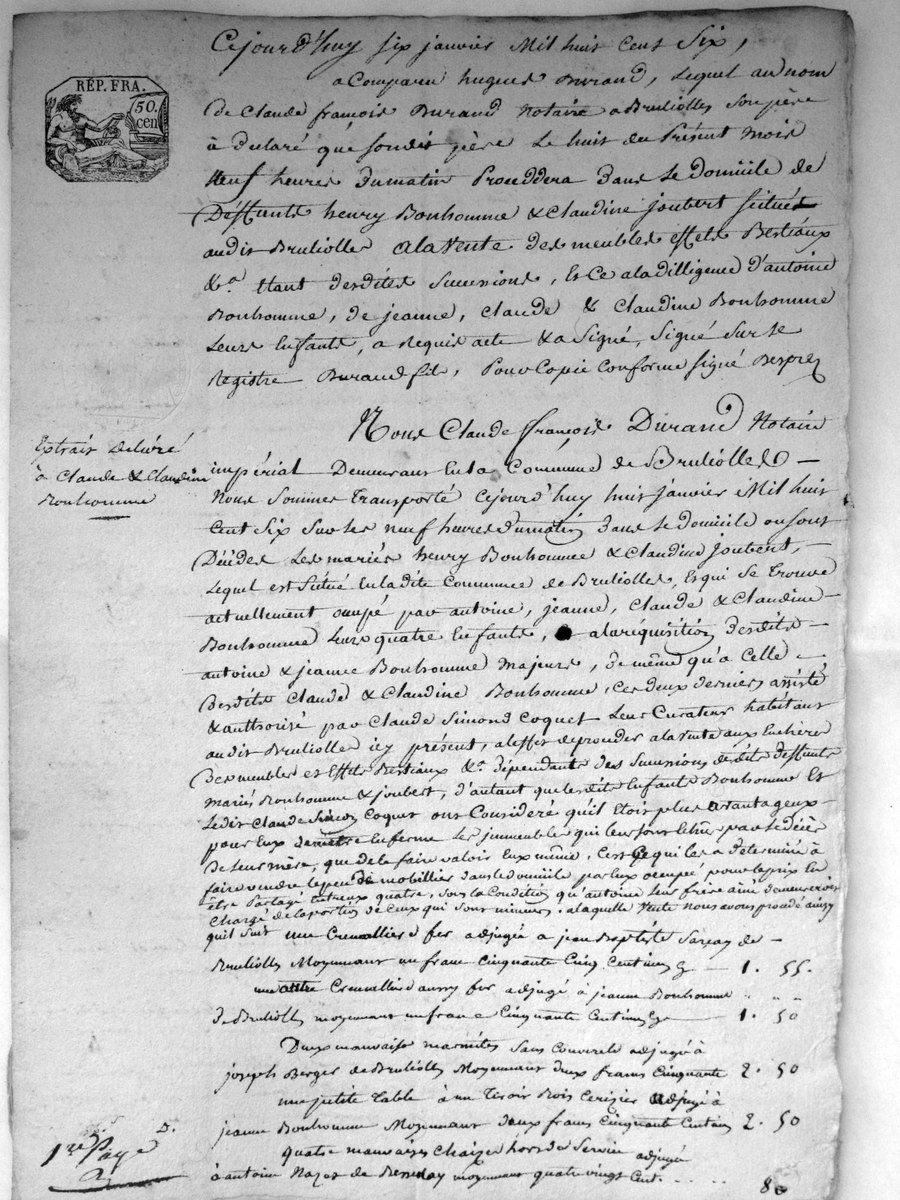 Cejourd'huy six janvier Mil huit cent Six,
RÉP. FRA.
50.
cen
a Comparu hugues Durand, Lequel au nom
de Claude françois Durand Notaire a Bruliolles Son père
à Déclaré que Son dit père Le huit du Présent mois
Neuf heures du matin Proceddera dans Le domicile de
Deffunts henry Bonhomme & Claudine Joubert Situé
au dit Brulioller a la Vente des meubles effets Bestiaux
&a. Etant desdites Successions, Et Ce a la dilligence d'antoine
Bonhomme, de jeanne, Claude & Claudine Bonhomme
Leurs Enfants, a Requis acte & a Signé, Signé Sur Le
Registre Durand fils, Pour Copie Conforme Signé Desprez
Nous Claude françois Durand Notaire
impérial Demeurant En la Commune de Brulioller
Extrait Delivré
à Claude & Claudine
Bonhomme
Nous Sommes Transporté Cejourd'huy huit janvier Mil huit
Cent Six Sur Les neuf heures du matin dans Le domicile ou Sont
Décédés Les mariés henry Bonhomme & Claudine Joubert,
Lequel est Situé En la dite Commune de Brulioller, Et qui Se Trouve
actuellement occupé par antoine, jeanne, Claude & Claudine
Bonhomme Leurs quatre Enfants, a la réquisition desdits
antoine & jeanne Bonhomme majeurs, de même qu'a Celle
Desdits Claude & Claudine Bonhomme, Ces deux derniers assisté
& authorisé par Claude Simond Coquet Leur Curateur habitant
au dit Brulioller icy présent, a l'effet de procéder a la vente aux Enchères
Des meubles et Effets Bestiaux &a. dépendants des Successions desdits deffunts
mariés Bonhomme & Joubert, d'autant que lesdits Enfants Bonhomme Et
Ledit Claude Simon Coquet ont Consideré qu'il étoit plus avantageux
pour Eux de mettre En ferme Les immeubles qui leur Sont par Le décès
De Leur mère, que de le faire valoir Eux même, C'est Ce qui les a determiné à
faire vendre Le peu de mobillier dans le domicile par Eux occupée, pour le prix En
être Partagé Entreux quatre, Sous la Condition qu'antoine Leur frère aîné demeurera
Chargé de la portion de Ceux qui Sont mineurs, a laquelle Vente nous avons procédé ainsy
qu'il Suit
une Cremallier de fer adjugée a jean Baptiste de
Brulioller Moyennant un franc Cinquante Cinq Centimes 1. 55.
une autre Cremallier d'aussy fer adjugé à jeanne Bonhomme
de Brulioller moyennant un franc Cinquante Centimes 1. 50
Deux mauvaise marmites Sans Couvercle adjugé à
joseph Berger de Brulioller Moyennant deux francs Cinquante 2. 50
une petite Table à un Tiroir Bois Cerisier adjugé à
jeanne Bonhomme Moyennant deux francs Cinquante Centimes 2. 50
quatre mauvaises Chaizes hors de Service adjugé
à antoine de moyennant quatre vingt Cent. 80
1re Page